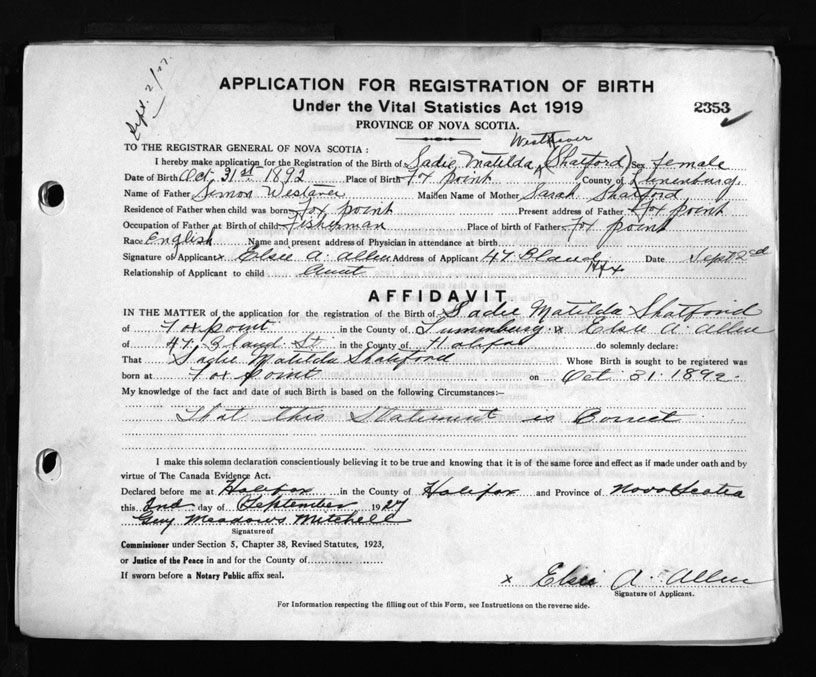 Sept. 2/27.
APPLICATION FOR REGISTRATION OF BIRTH
Under the Vital Statistics Act 1919
2353
PROVINCE OF NOVA SCOTIA.
TO THE REGISTRAR GENERAL OF NOVA SCOTIA :
Westhaver
I hereby make application for the Registration of the Birth of Sadie Matilda (Shatford) Sex female
Date of Birth Oct. 31st 1892 Place of Birth Fox point County of Lunenburg.
Name of Father Simon Westaver Maiden Name of Mother Sarah Shatford
Residence of Father when child was born Fox point Present address of Father Fox point
Occupation of Father at Birth of child Fisherman Place of birth of Father Fox point
Race English Name and present address of Physician in attendance at birth
Signature of Applicant x Elsie A. Allen Address of Applicant 47 Bland Hfx Date Sept 2nd
Relationship of Applicant to child Aunt
AFFIDAVIT
IN THE MATTER of the application for the registration of the Birth of Sadie Matilda Shatford
of Fox point in the County of Lunenburg. x Elsie A. Allen
of 47 Bland St in the County of Halifax do solemnly declare:
That Sadie Matilda Shatford Whose Birth is sought to be registered was
born at Fox point on Oct 31. 1892.
My knowledge of the fact and date of such Birth is based on the following Circumstances:—
That this Statement is Correct
I make this solemn declaration conscientiously believing it to be true and knowing that it is of the same force and effect as if made under oath and by
virtue of The Canada Evidence Act.
Declared before me at Halifax in the County of Halifax and Province of Nova Scotia
this 2nd day of September 1927
Guy Meadows Mitchell
Signature of
Commissioner under Section 5, Chapter 38, Revised Statutes, 1923,
or Justice of the Peace in and for the County of
If sworn before a Notary Public affix seal.
x Elsie A. Allen
Signature of Applicant.
For Information respecting the filling out of this Form, see Instructions on the reverse side.